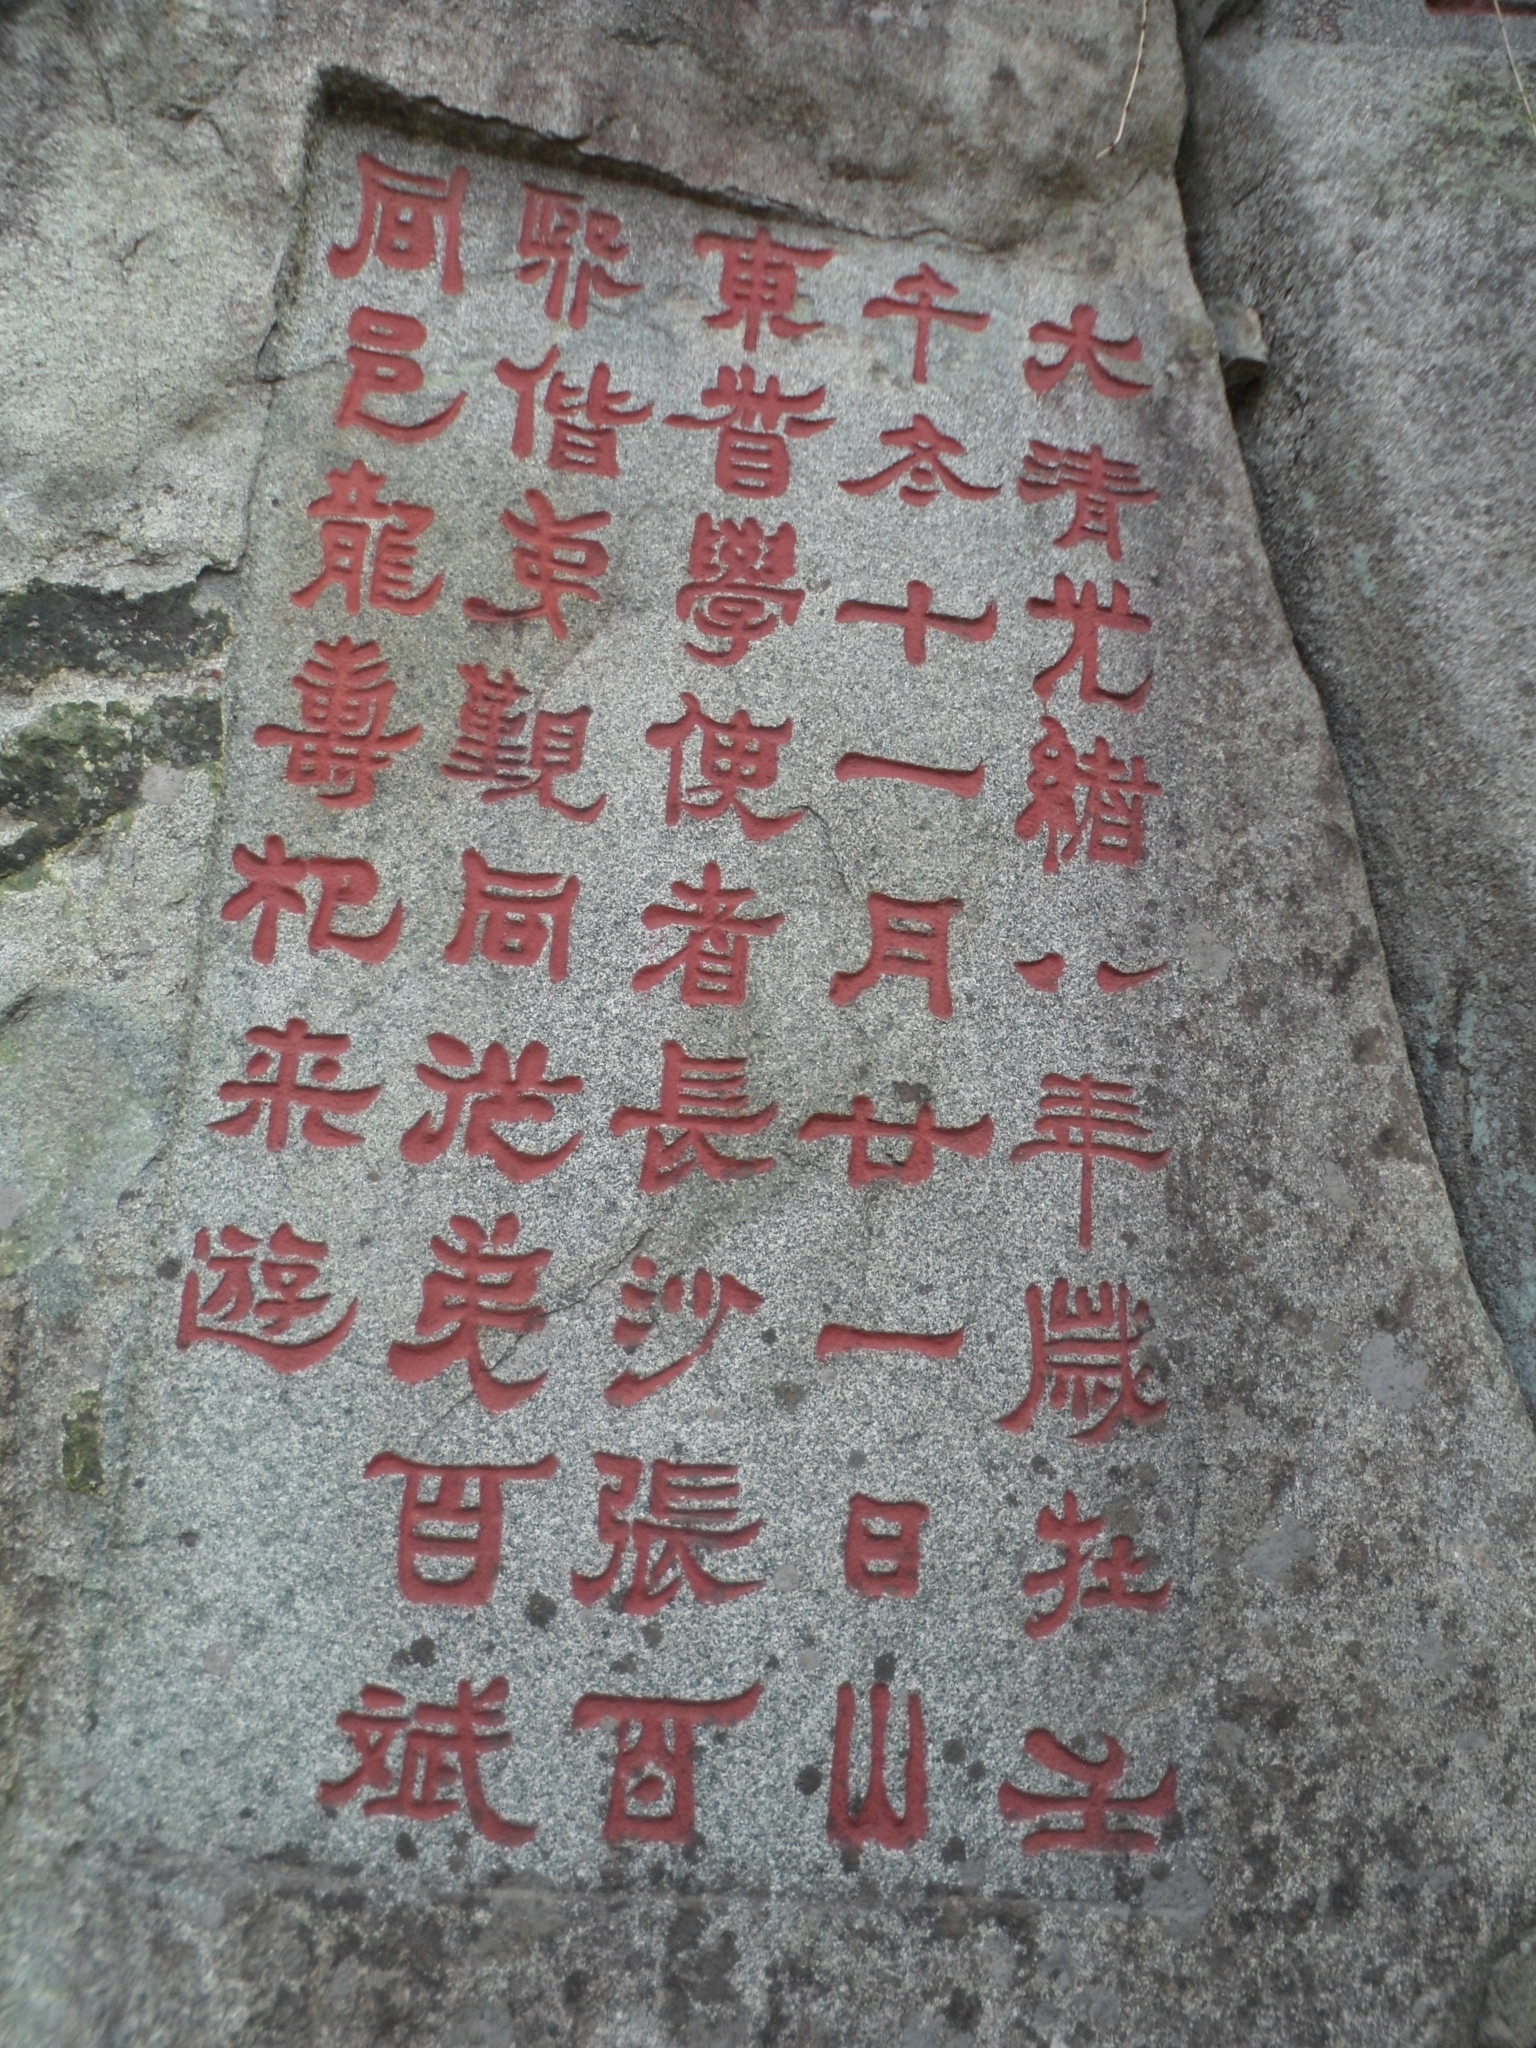 大清光緒八年歲在壬
午冬十一月廿一日山
東督學使者長沙張百
熙偕夷覲同從弟百斌
同邑龍壽杞來遊